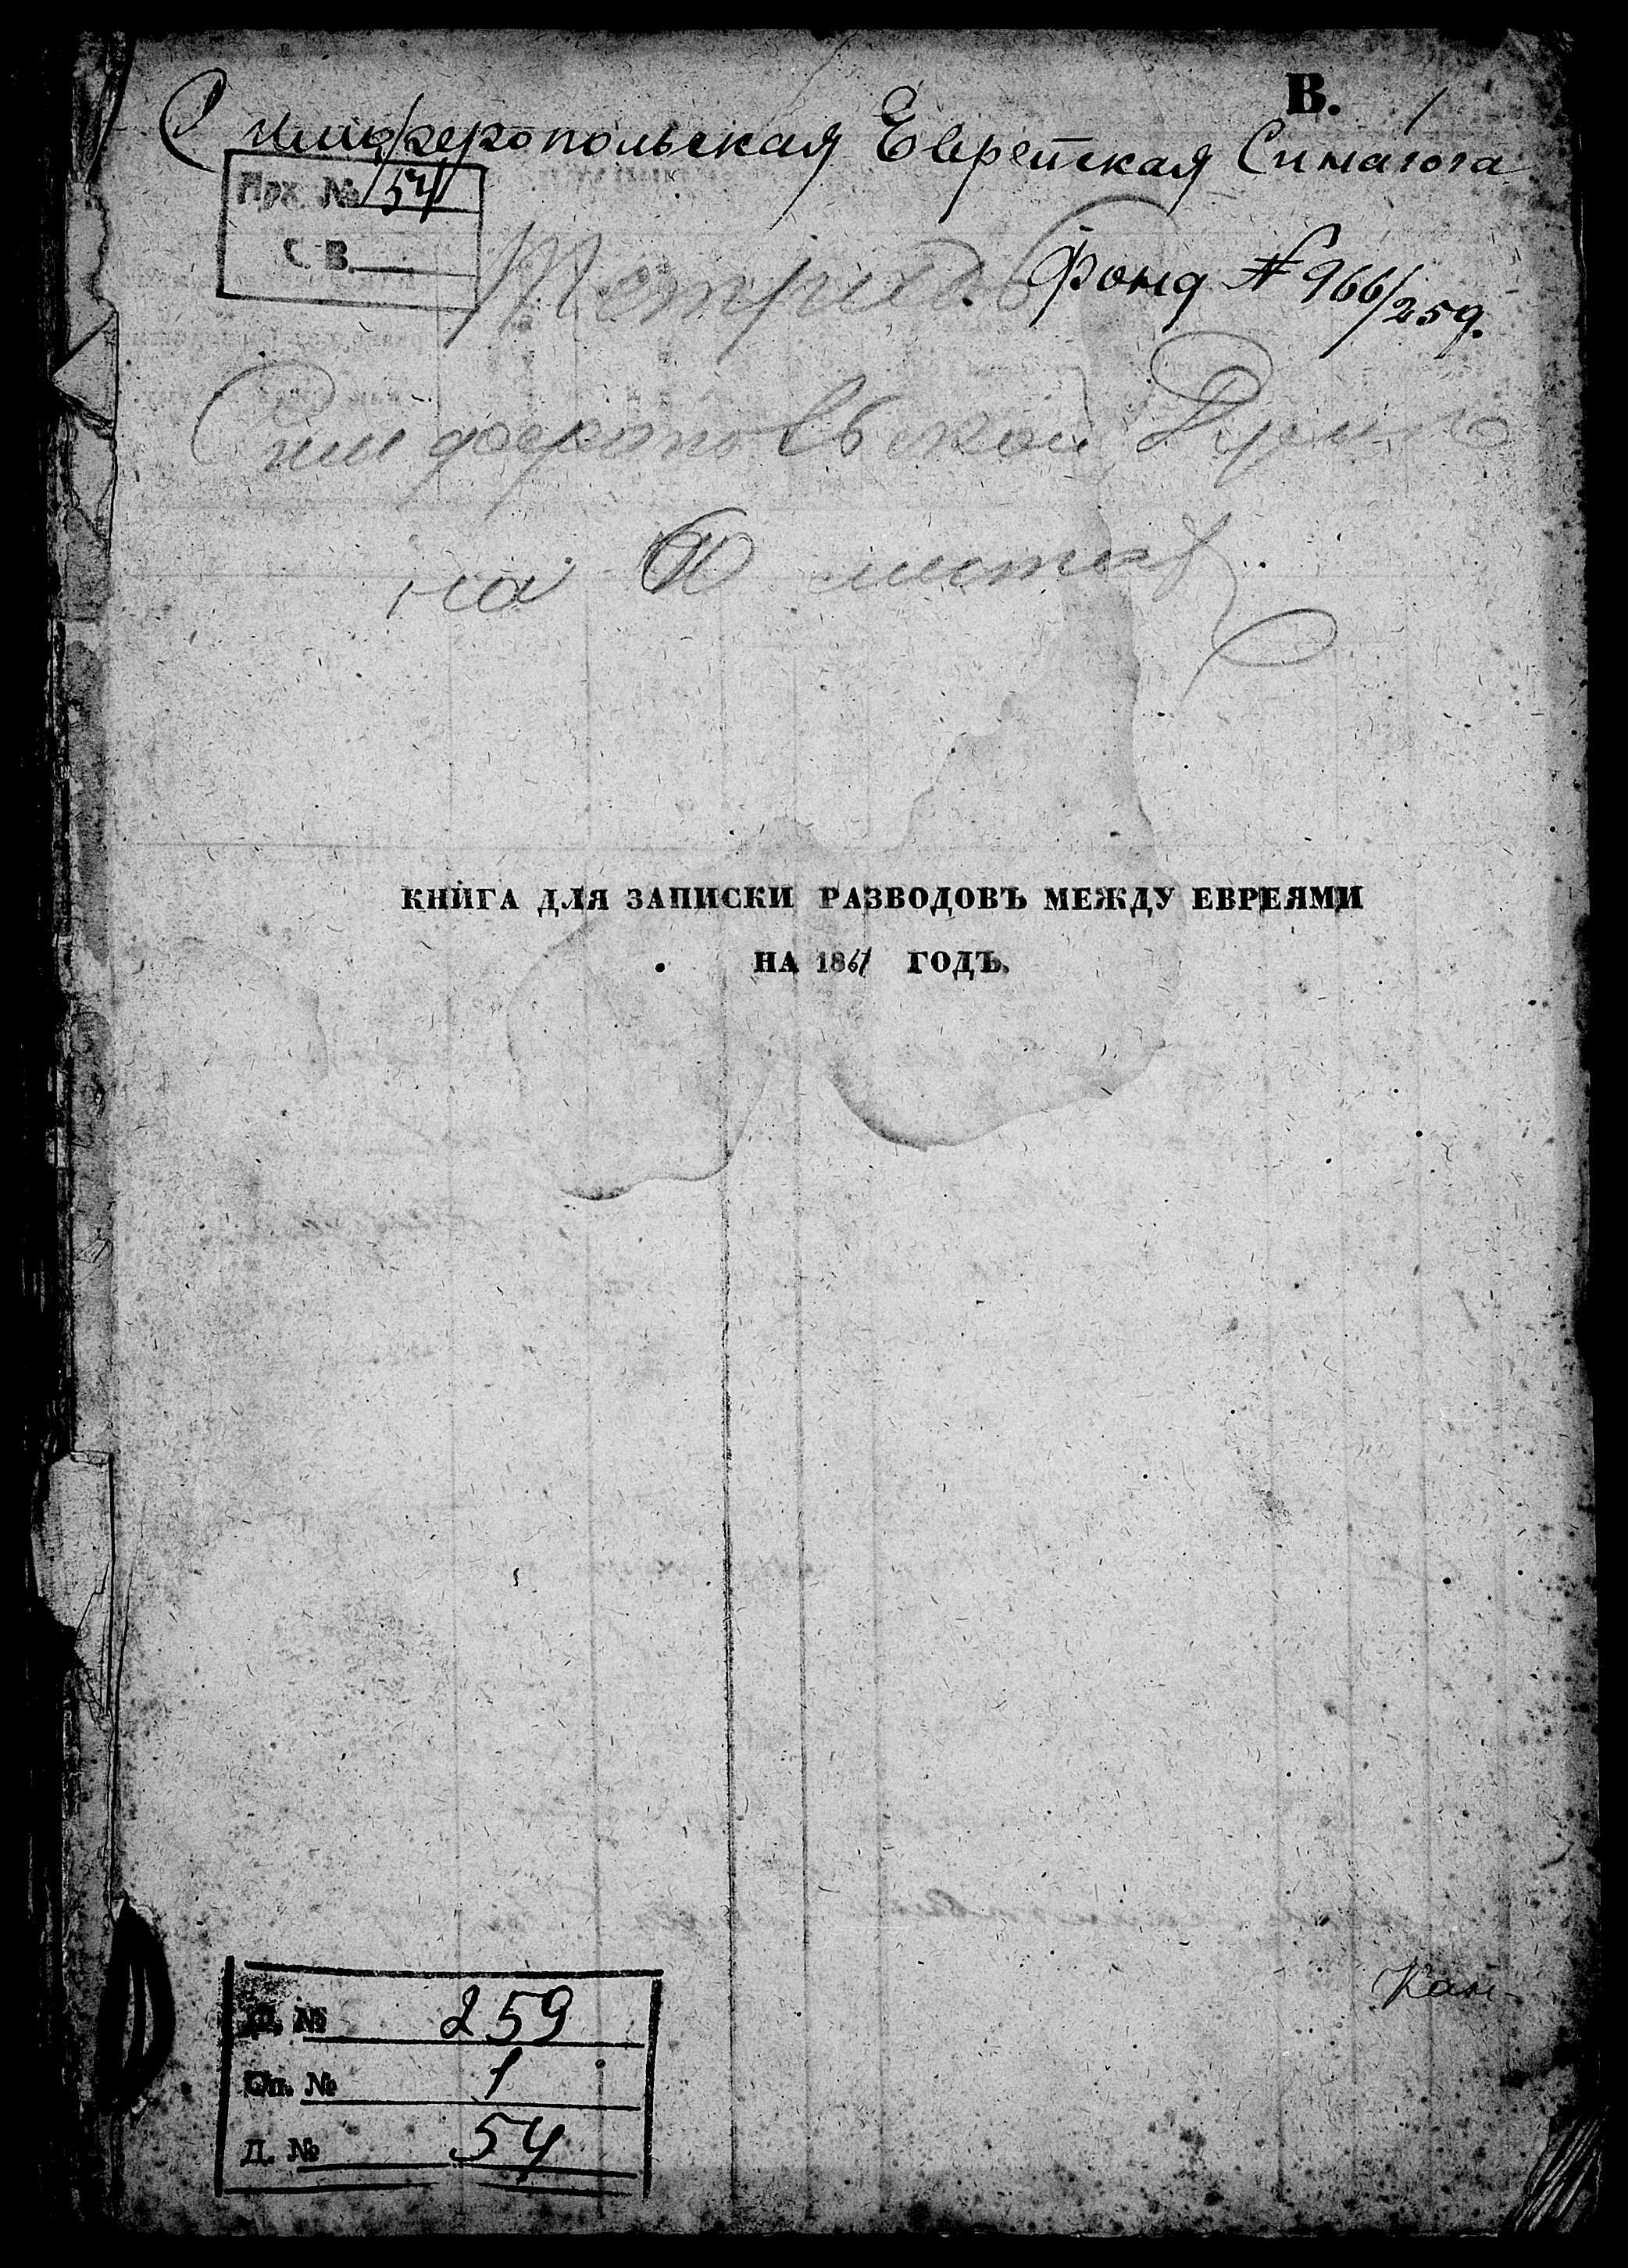 В.
Симферопольская Еврейская Синагога
Прх. № 54
С В.
Фонд № 966/259.
Симферопольской Думы
на листах
КНИГА ДЛЯ ЗАПИСКИ РАЗВОДОВЪ МЕЖДУ ЕВРЕЯМИ
НА 1861 ГОДЪ.
Ф. № 259
Оп. № 1
Д. № 54